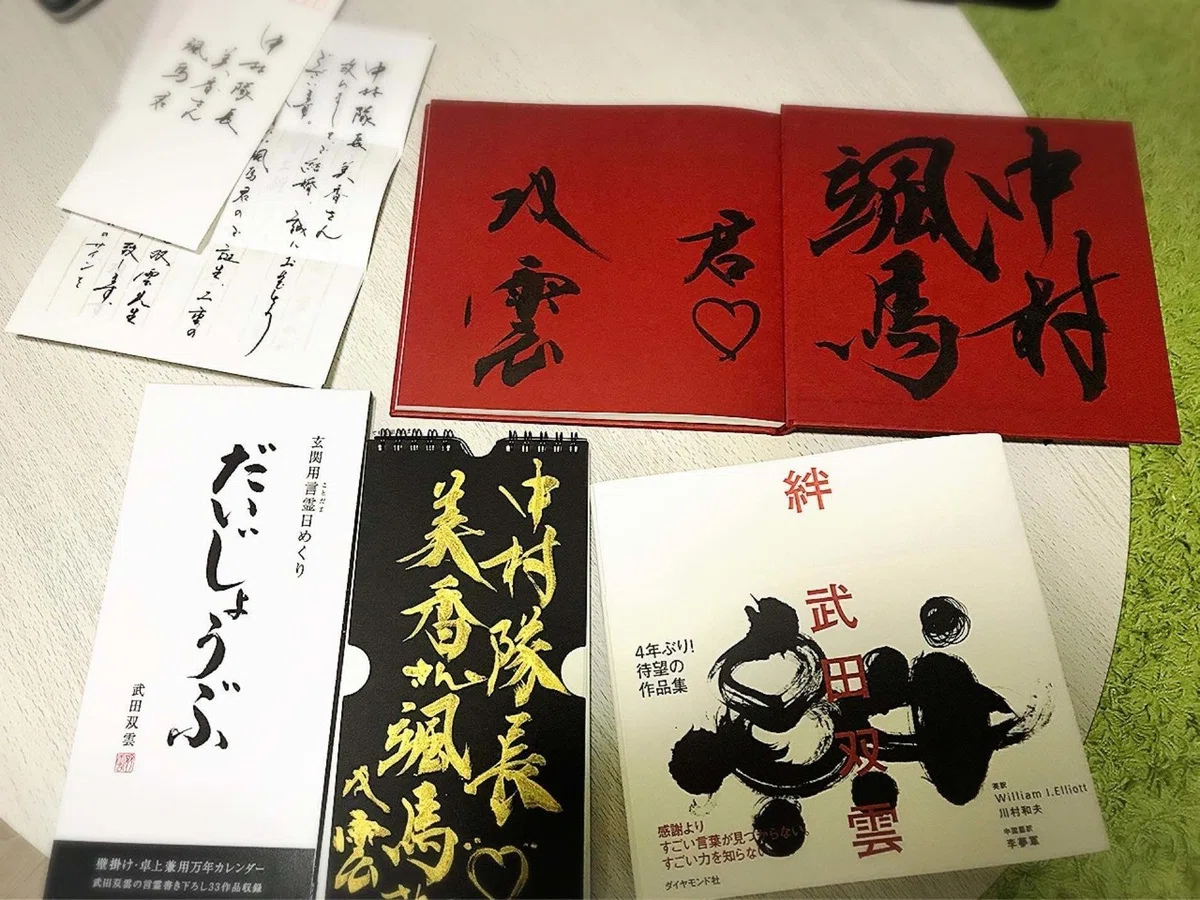 中村隊長
美香さん
颯馬君
中村隊長 美香さん
ご結婚、誠におめでとう
颯馬君のご誕生、二重の
双雲先生
致します。
のサインを
中村
颯馬
君♡
双雲
玄関用言霊日めくり
ことだま
だいじょうぶ
武田双雲
壁掛け・卓上兼用万年カレンダー
武田双雲の言霊書き下ろし33作品収録
中村隊長♡
美香さん
颯馬
双雲
絆
武田双雲
4年ぶり!
待望の
作品集
感謝より
すごい言葉が見つからない。
すごい力を知らない
ダイヤモンド社
英訳
William I.Elliott
川村和夫
中国語訳
李夢軍